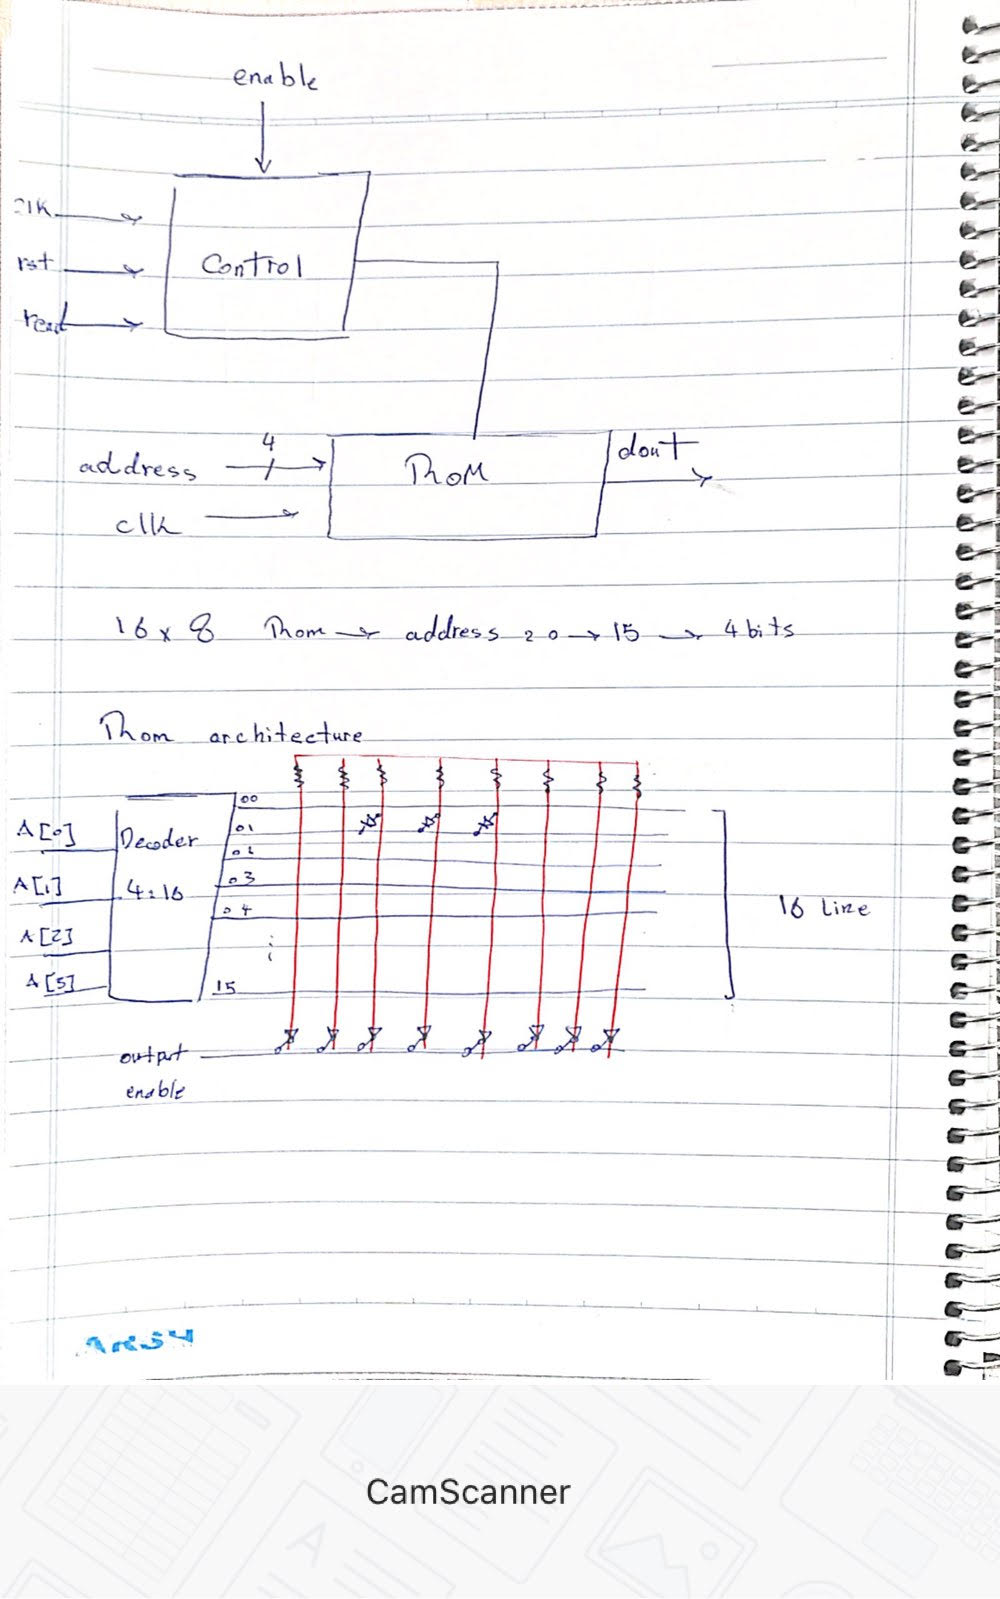 enable
clk
rst
read
Control
address 4
clk
PRoM
dout
16 x 8 Prom → address = 0 → 15 → 4 bits
Prom architecture
A[0]
A[1]
A[2]
A[3]
Decoder
4:16
00
01
02
03
04
15
16 Line
output
enable
CamScanner